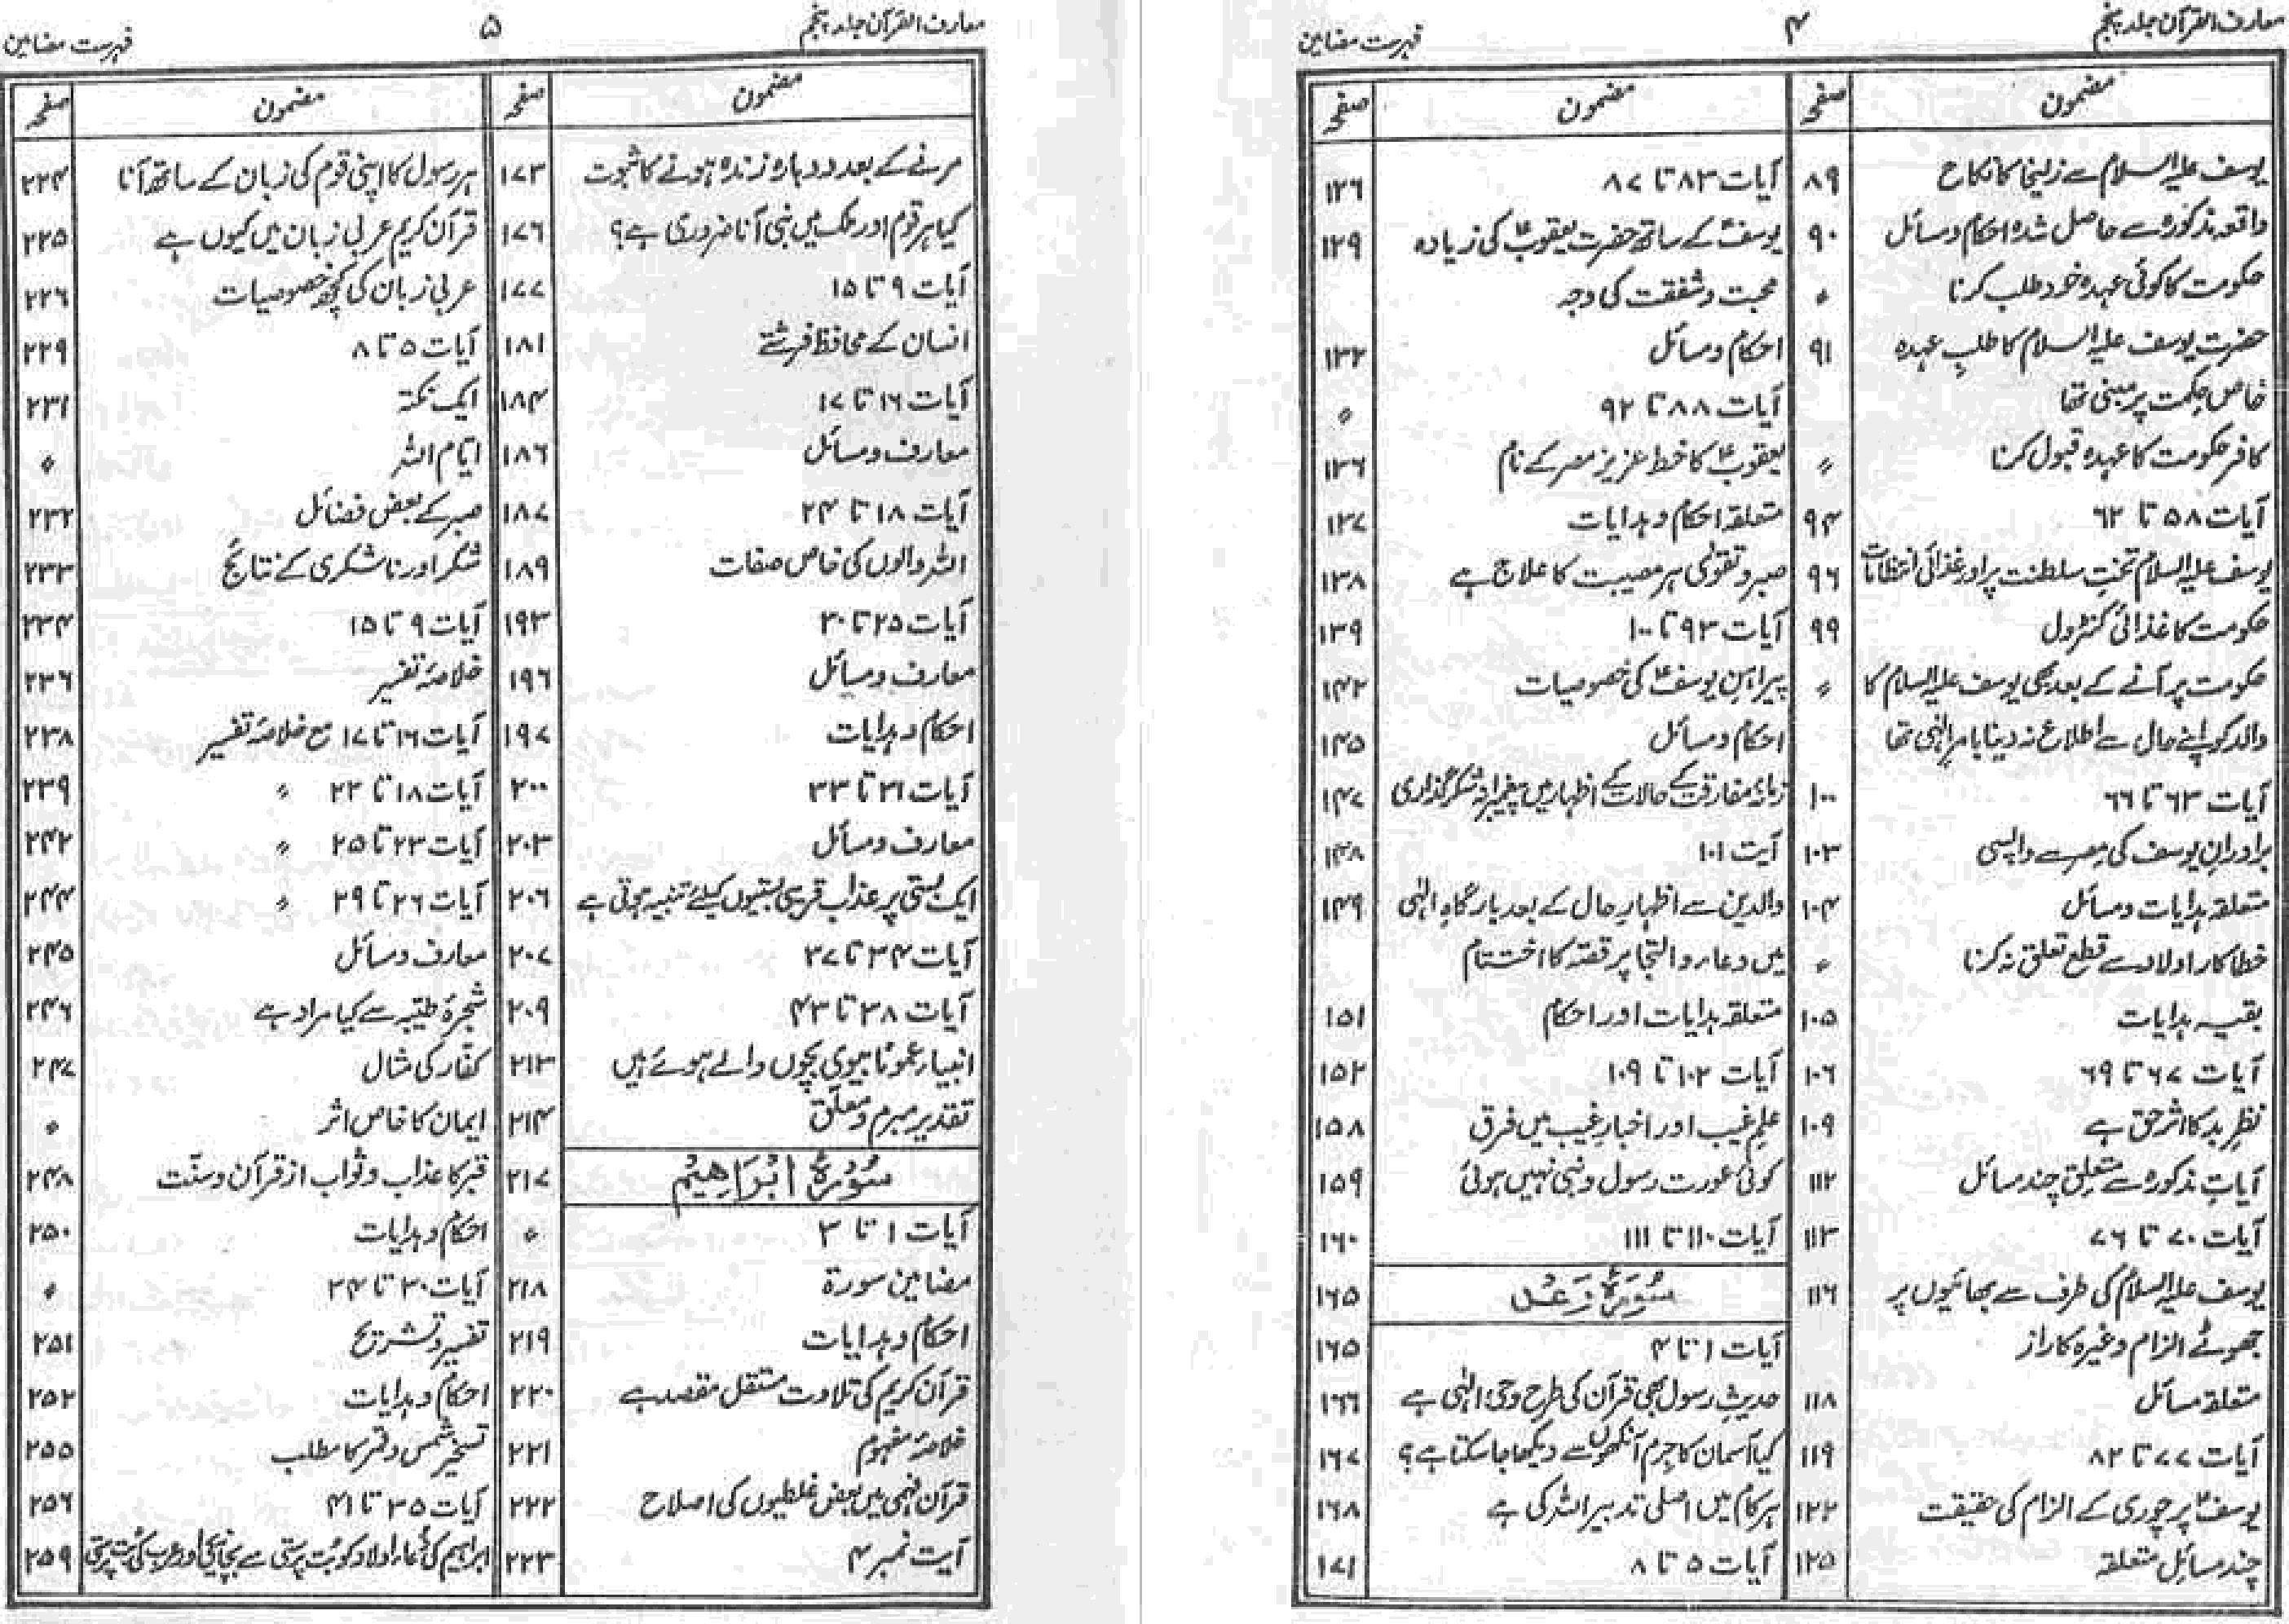 معارف القرآن جلد پنجم
۴
فہرست مضامین
مضمون
صفحہ
مضمون
صفحہ
یوسف علیہ السلام سے زلیخا کا نکاح ۸۹
واقعہ مذکورہ سے حاصل شدہ احکام و مسائل ۹۰
حکومت کا کوئی عہدہ خود طلب کرنا ؍
حضرت یوسف علیہ السلام کا طلبِ عہدہ ۹۱
خاص حکمت پر مبنی تھا
کافر حکومت کا عہدہ قبول کرنا ؍
آیات ۵۸ تا ۶۲ ۹۴
یوسف علیہ السلام تختِ سلطنت پر اور غذائی انتظامات ۹۶
حکومت کا غذائی کنٹرول ۹۹
حکومت پر آنے کے بعد بھی یوسف علیہ السلام کا ؍
والد کو اپنے حال سے اطلاع نہ دینا بامرِ الٰہی تھا
آیات ۶۳ تا ۶۶ ۱۰۰
برادرانِ یوسف کی مصر سے واپسی ۱۰۳
متعلقہ ہدایات و مسائل ۱۰۴
خطاکار اولاد سے قطع تعلق نہ کرنا ؍
بقیہ ہدایات ۱۰۵
آیات ۶۷ تا ۶۹ ۱۰۶
نظرِ بد کا اثر حق ہے ۱۰۹
آیاتِ مذکورہ سے متعلق چند مسائل ۱۱۲
آیات ۷۰ تا ۷۶ ۱۱۳
یوسف علیہ السلام کی طرف سے بھائیوں پر ۱۱۶
جھوٹے الزام وغیرہ کا راز
متعلقہ مسائل ۱۱۸
آیات ۷۷ تا ۸۲ ۱۱۹
یوسفؑ پر چوری کے الزام کی حقیقت ۱۲۲
چند مسائل متعلقہ ۱۲۵
آیات ۸۳ تا ۸۷ ۱۲۶
یوسفؑ کے ساتھ حضرت یعقوبؑ کی زیادہ ۱۲۹
محبت و شفقت کی وجہ
احکام و مسائل ۱۳۲
آیات ۸۸ تا ۹۲ ؍
یعقوبؑ کا خط عزیز مصر کے نام ۱۳۶
متعلقہ احکام و ہدایات ۱۳۷
صبر و تقویٰ ہر مصیبت کا علاج ہے ۱۳۸
آیات ۹۳ تا ۱۰۰ ۱۳۹
پیراہن یوسفؑ کی خصوصیات ۱۴۲
احکام و مسائل ۱۴۵
زمانۂ مفارقت کے حالات کے اظہار میں پیغمبرانہ شکر گذاری ۱۴۷
آیت ۱۰۱ ۱۴۸
والدین سے اظہارِ حال کے بعد بارگاہِ الٰہی ۱۴۹
میں دعاء و التجا پر قصّہ کا اختتام
متعلقہ ہدایات اور احکام ۱۵۱
آیات ۱۰۲ تا ۱۰۹ ۱۵۲
علمِ غیب اور اخبارِ غیب میں فرق ۱۵۸
کوئی عورت رسول و نبی نہیں ہوئی ۱۵۹
آیات ۱۱۰ تا ۱۱۱ ۱۶۰
سُوْرَۂ رَعْد ۱۶۵
آیات ۱ تا ۴ ۱۶۵
حدیثِ رسول بھی قرآن کی طرح وحی الٰہی ہے ۱۶۶
کیا آسمان کا جرم آنکھوں سے دیکھا جا سکتا ہے؟ ۱۶۷
ہر کام میں اصلی تدبیر اللہ کی ہے ۱۶۸
آیات ۵ تا ۸ ۱۷۱
معارف القرآن جلد پنجم
۵
فہرست مضامین
مضمون
صفحہ
مضمون
صفحہ
مرنے کے بعد دوبارہ زندہ ہونے کا ثبوت ۱۷۳
کیا ہر قوم اور ملک میں نبی آنا ضروری ہے؟ ۱۷۶
آیات ۹ تا ۱۵ ۱۷۷
انسان کے محافظ فرشتے ۱۸۱
آیات ۱۶ تا ۱۷ ۱۸۴
معارف و مسائل ۱۸۶
آیات ۱۸ تا ۲۴ ۱۸۷
اللہ والوں کی خاص صفات ۱۸۹
آیات ۲۵ تا ۳۰ ۱۹۳
معارف و مسائل ۱۹۶
احکام و ہدایات ۱۹۷
آیات ۳۱ تا ۳۳ ۲۰۰
معارف و مسائل ۲۰۳
ایک بستی پر عذاب قریبی بستیوں کیلئے تنبیہ ہوتی ہے ۲۰۶
آیات ۳۴ تا ۳۷ ۲۰۷
آیات ۳۸ تا ۴۳ ۲۰۹
انبیاء عموماً بیوی بچوں والے ہوئے ہیں ۲۱۳
تقدیر مبرم و معلّق ۲۱۴
سُوْرَۂ اِبْرَاهِيْم ۲۱۷
آیات ۱ تا ۳ ؍
مضامین سورۃ ۲۱۸
احکام و ہدایات ۲۱۹
قرآن کریم کی تلاوت مستقل مقصد ہے ۲۲۰
خلاصۂ مفہوم ۲۲۱
قرآن فہمی میں بعض غلطیوں کی اصلاح ۲۲۲
آیت نمبر ۴ ۲۲۳
ہر رسول کا اپنی قوم کی زبان کے ساتھ آنا ۲۲۴
قرآن کریم عربی زبان میں کیوں ہے ۲۲۵
عربی زبان کی کچھ خصوصیات ۲۲۶
آیات ۵ تا ۸ ۲۲۹
ایک نکتہ ۲۳۱
ایّام اللہ ؍
صبر کے بعض فضائل ۲۳۲
شکر اور ناشکری کے نتائج ۲۳۳
آیات ۹ تا ۱۵ ۲۳۴
خلاصۂ تفسیر ۲۳۶
آیات ۱۶ تا ۱۷ مع خلاصۂ تفسیر ۲۳۸
آیات ۱۸ تا ۲۲ ؍ ۲۳۹
آیات ۲۳ تا ۲۵ ؍ ۲۴۲
آیات ۲۶ تا ۲۹ ؍ ۲۴۴
معارف و مسائل ۲۴۵
شجرۂ طیّبہ سے کیا مراد ہے ۲۴۶
کفّار کی مثال ۲۴۷
ایمان کا خاص اثر ؍
قبر کا عذاب و ثواب از قرآن و سنّت ۲۴۸
احکام و ہدایات ۲۵۰
آیات ۳۰ تا ۳۴ ؍
تفسیر و تشریح ۲۵۱
احکام و ہدایات ۲۵۲
تسخیر شمس و قمر کا مطلب ۲۵۵
آیات ۳۵ تا ۴۱ ۲۵۶
ابراہیم کی دُعاء اولاد کو بُت پرستی سے بچانیکی اور عرب کی بُت پرستی ۲۵۹